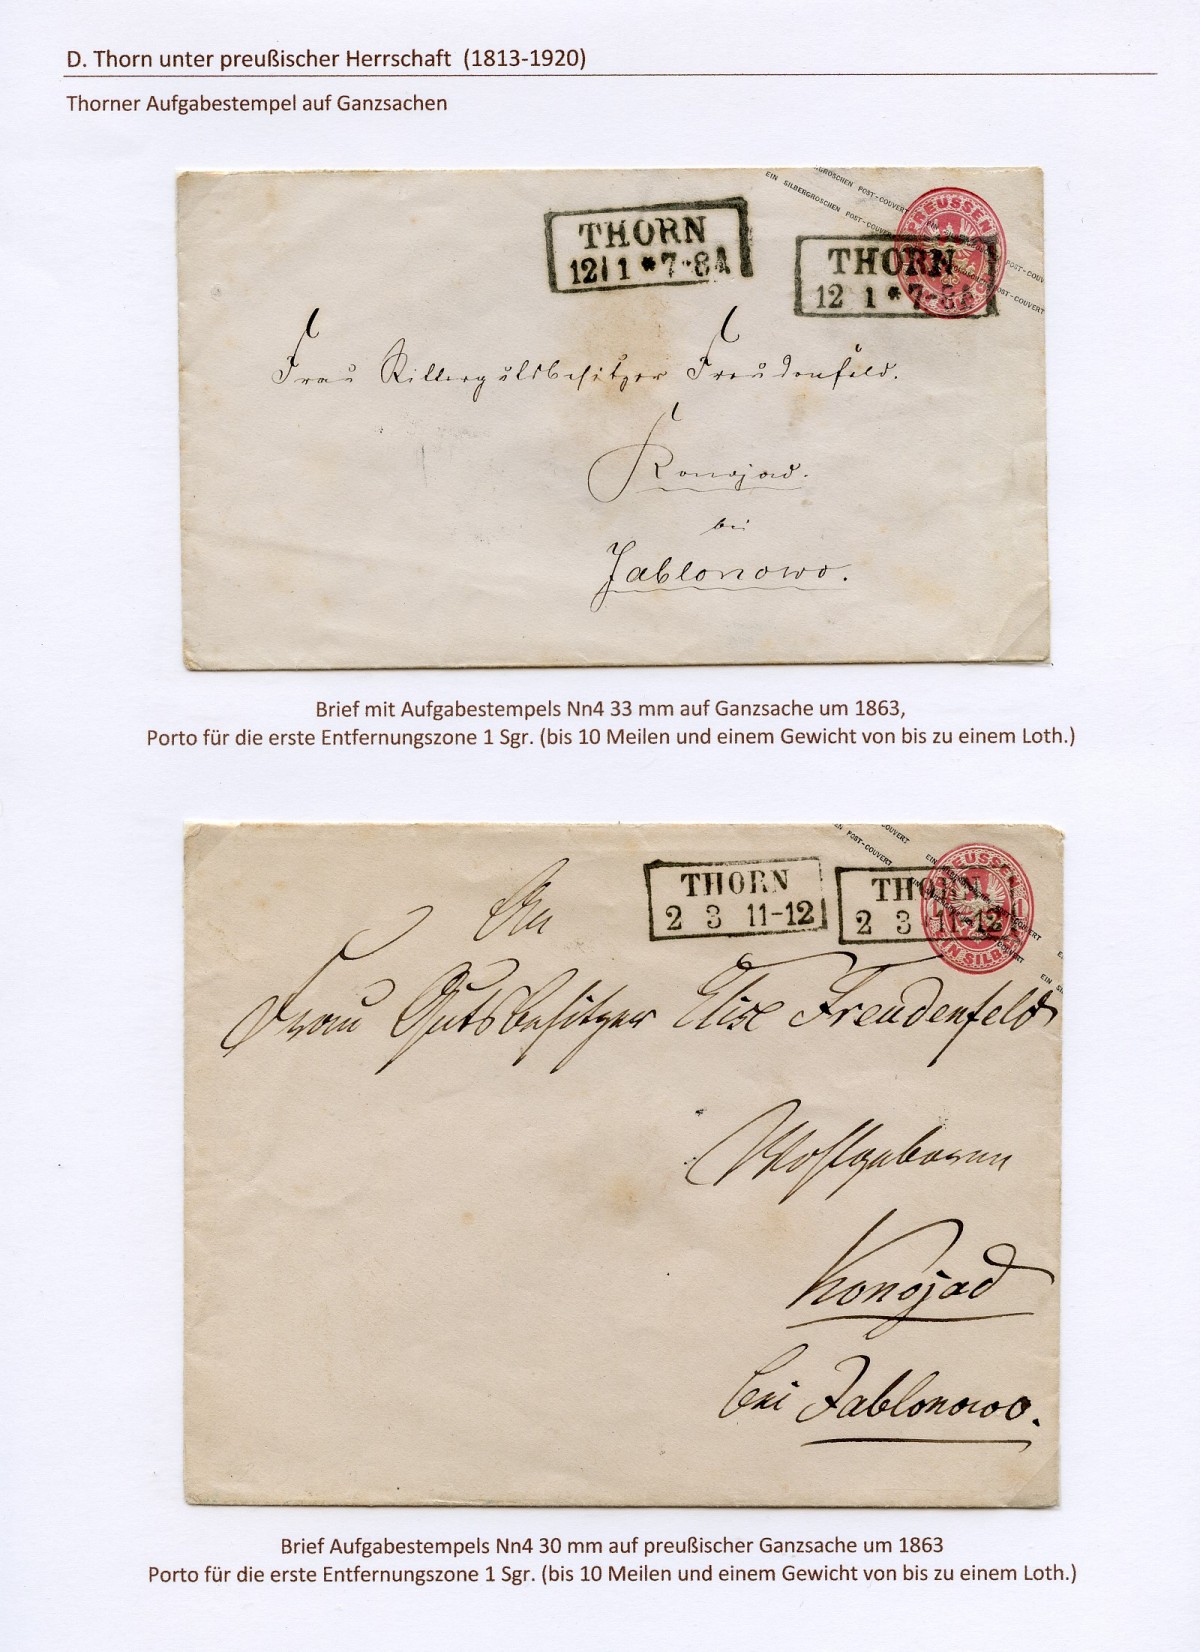 D. Thorn unter preußischer Herrschaft (1813-1920)
Thorner Aufgabestempel auf Ganzsachen
SILBERGROSCHEN POST-COUVERT
EIN SILBERGROSCHEN POST-COUVERT
POST-COUVERT
POST-COUVERT
PREUSSEN
THORN
12 1 * 7-8A
THORN
12 1 * 7-8A
Frau Rittergutsbesitzer Freudenfeld.
Konojad.
bei
Jablonowo.
Brief mit Aufgabestempels Nn4 33 mm auf Ganzsache um 1863,
Porto für die erste Entfernungszone 1 Sgr. (bis 10 Meilen und einem Gewicht von bis zu einem Loth.)
POST-COUVERT
PREUSSEN
1 1
EIN SILB
THORN
2 3 11-12
THORN
2 3 11-12
An
Frau Gutsbesitzer Elise Freudenfeld
Wohlgeboren
Konojad
bei Jablonowo.
Brief Aufgabestempels Nn4 30 mm auf preußischer Ganzsache um 1863
Porto für die erste Entfernungszone 1 Sgr. (bis 10 Meilen und einem Gewicht von bis zu einem Loth.)